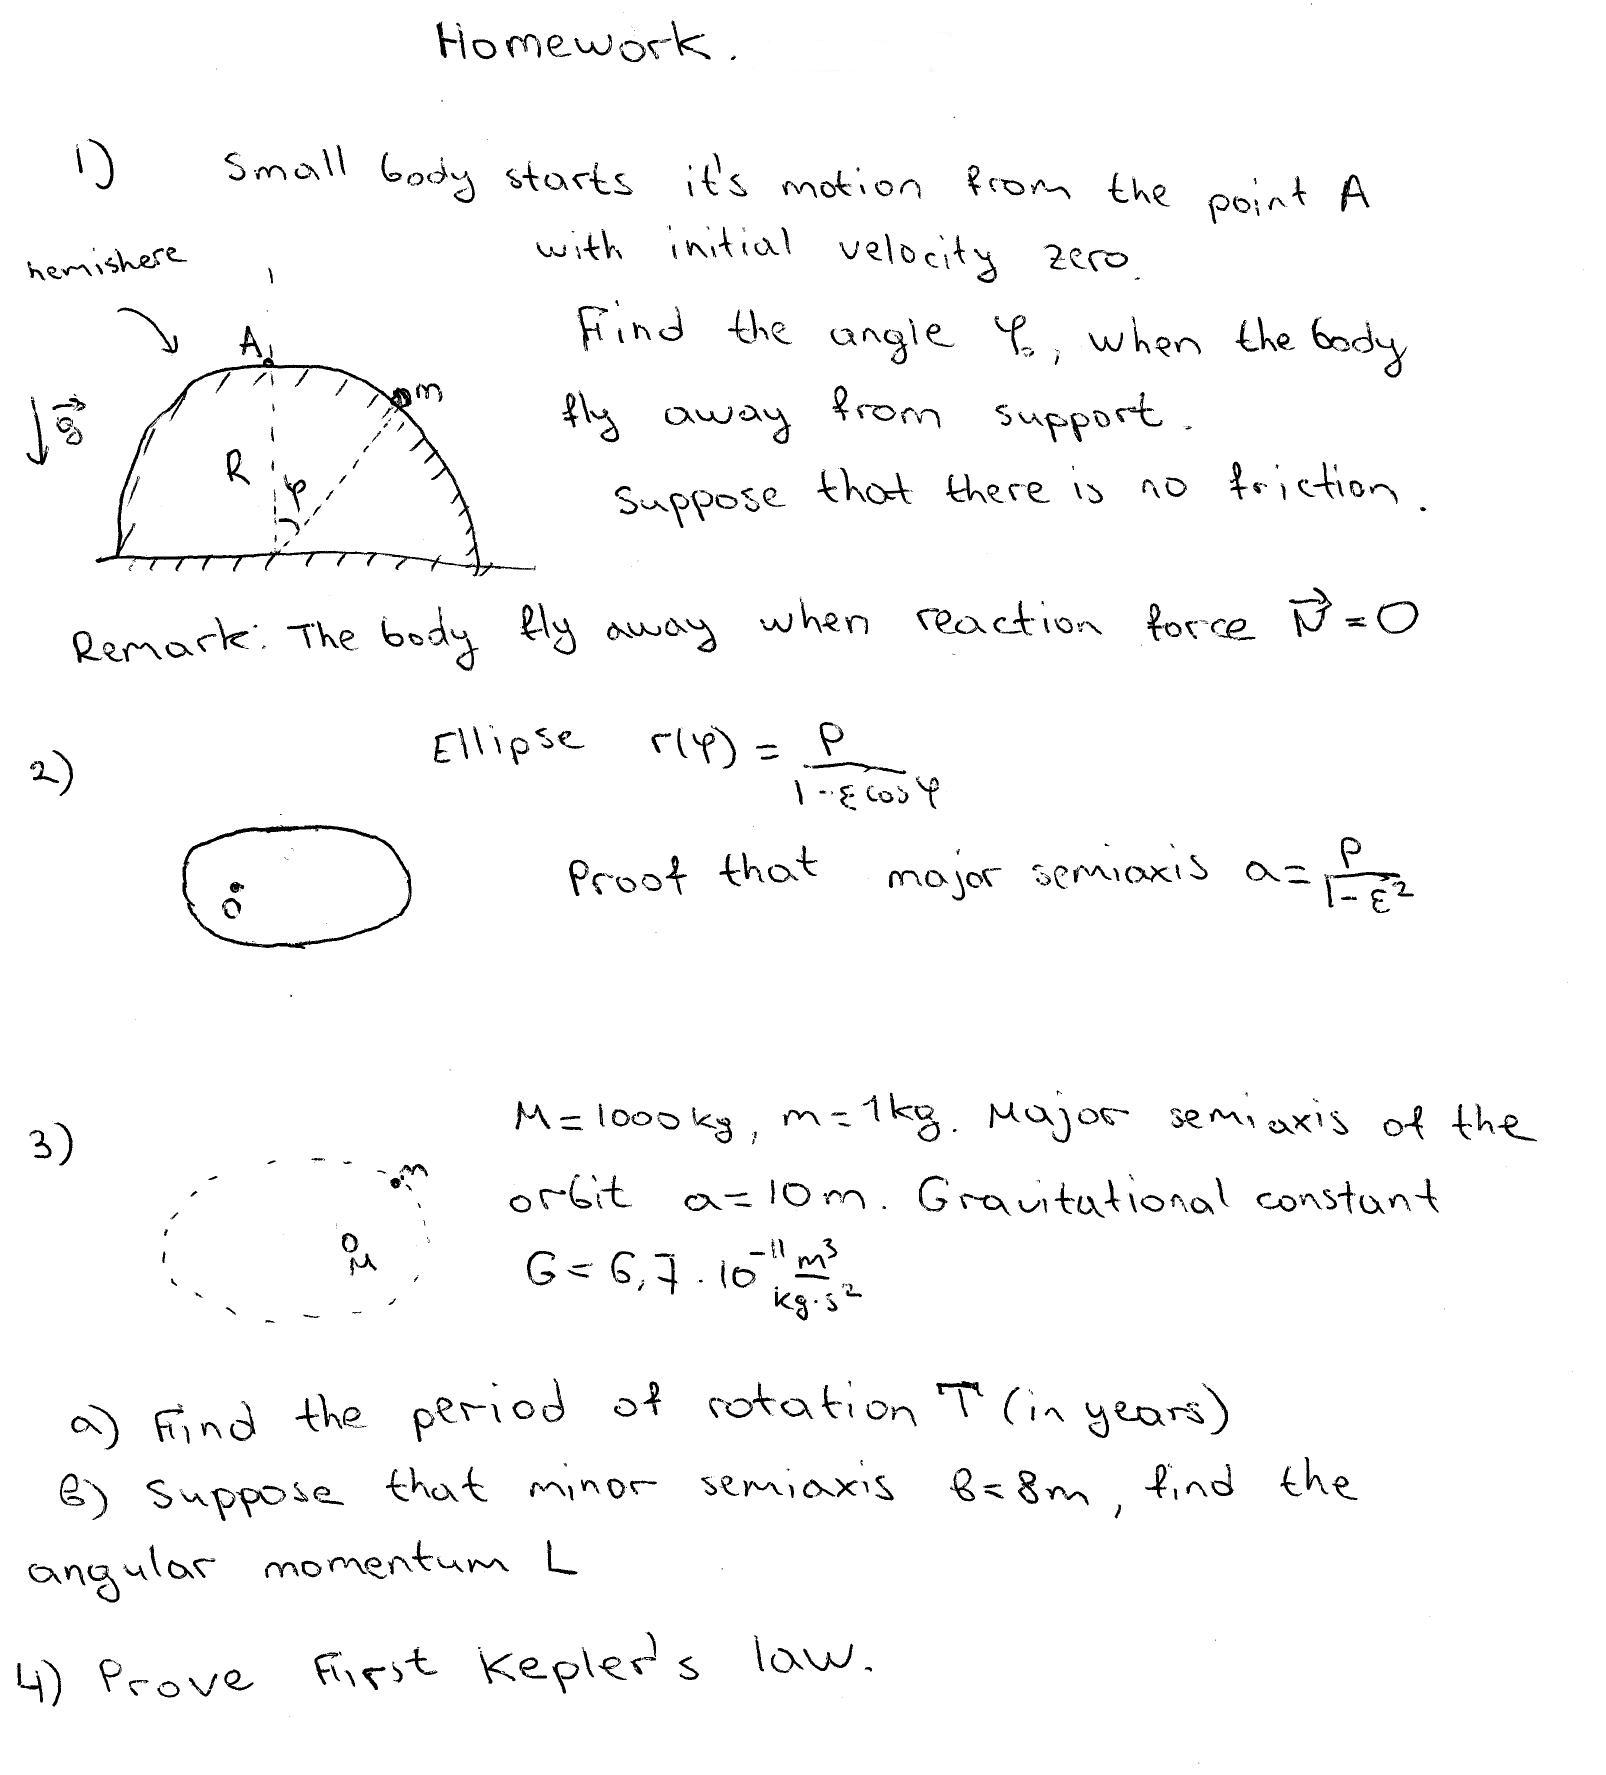 Homework.
1) Small body starts it's motion from the point A
with initial velocity zero.
hemishere
Find the angle φ₀, when the body
A
m
fly away from support.
g⃗
R
φ
Suppose that there is no friction.
Remark: The body fly away when reaction force N⃗ = 0
2) Ellipse r(φ) = p / (1 - ε cos φ)
O
Proof that major semiaxis a = p / (1 - ε²)
3) M = 1000 kg, m = 1 kg. Major semiaxis of the
m
orbit a = 10 m. Gravitational constant
M
G = 6,7 · 10⁻¹¹ m³ / (kg · s²)
a) Find the period of rotation T (in years)
b) Suppose that minor semiaxis b = 8m, find the
angular momentum L
4) Prove First Kepler's law.